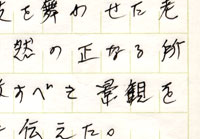 を舞わせた老
然の正なる所
すべき景観を
伝えた。